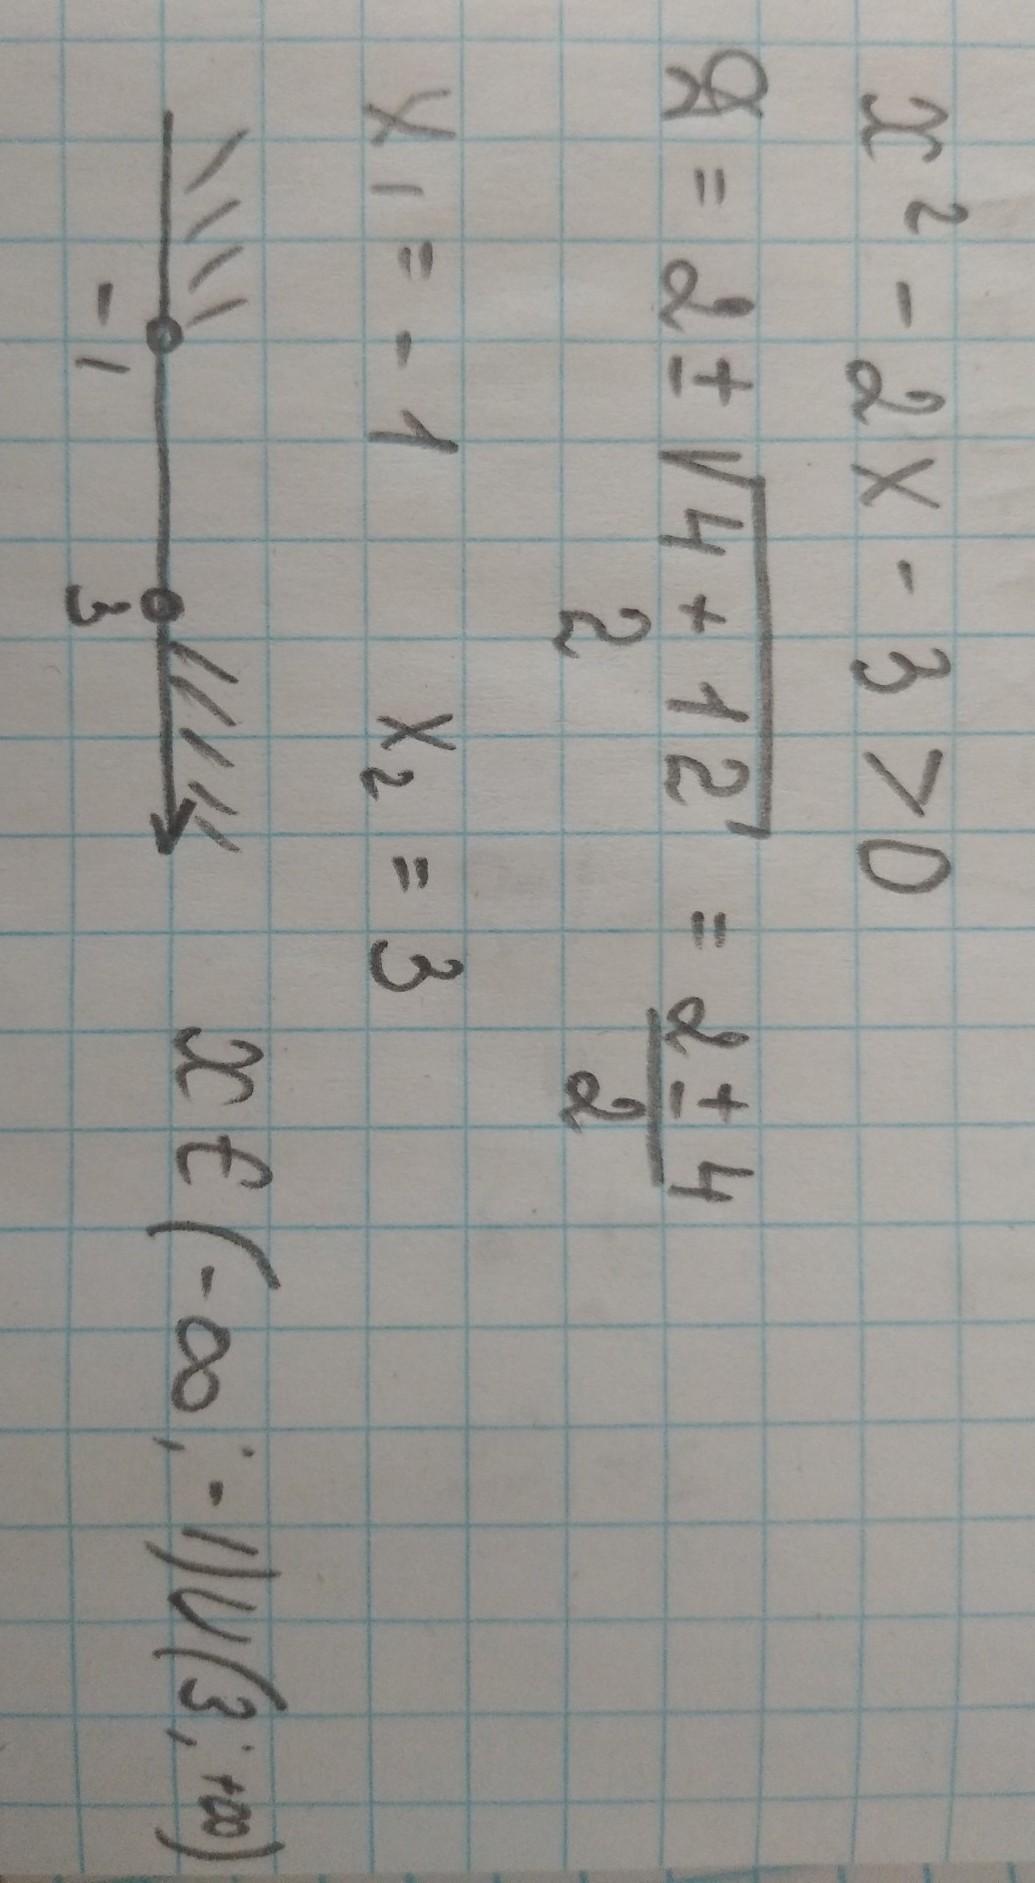 x² - 2x - 3 > 0
x = 2 ± √4 + 12 / 2 = 2 ± 4 / 2
x₁ = -1 x₂ = 3
-1 3 x ∈ (-∞; -1) ∪ (3; +∞)